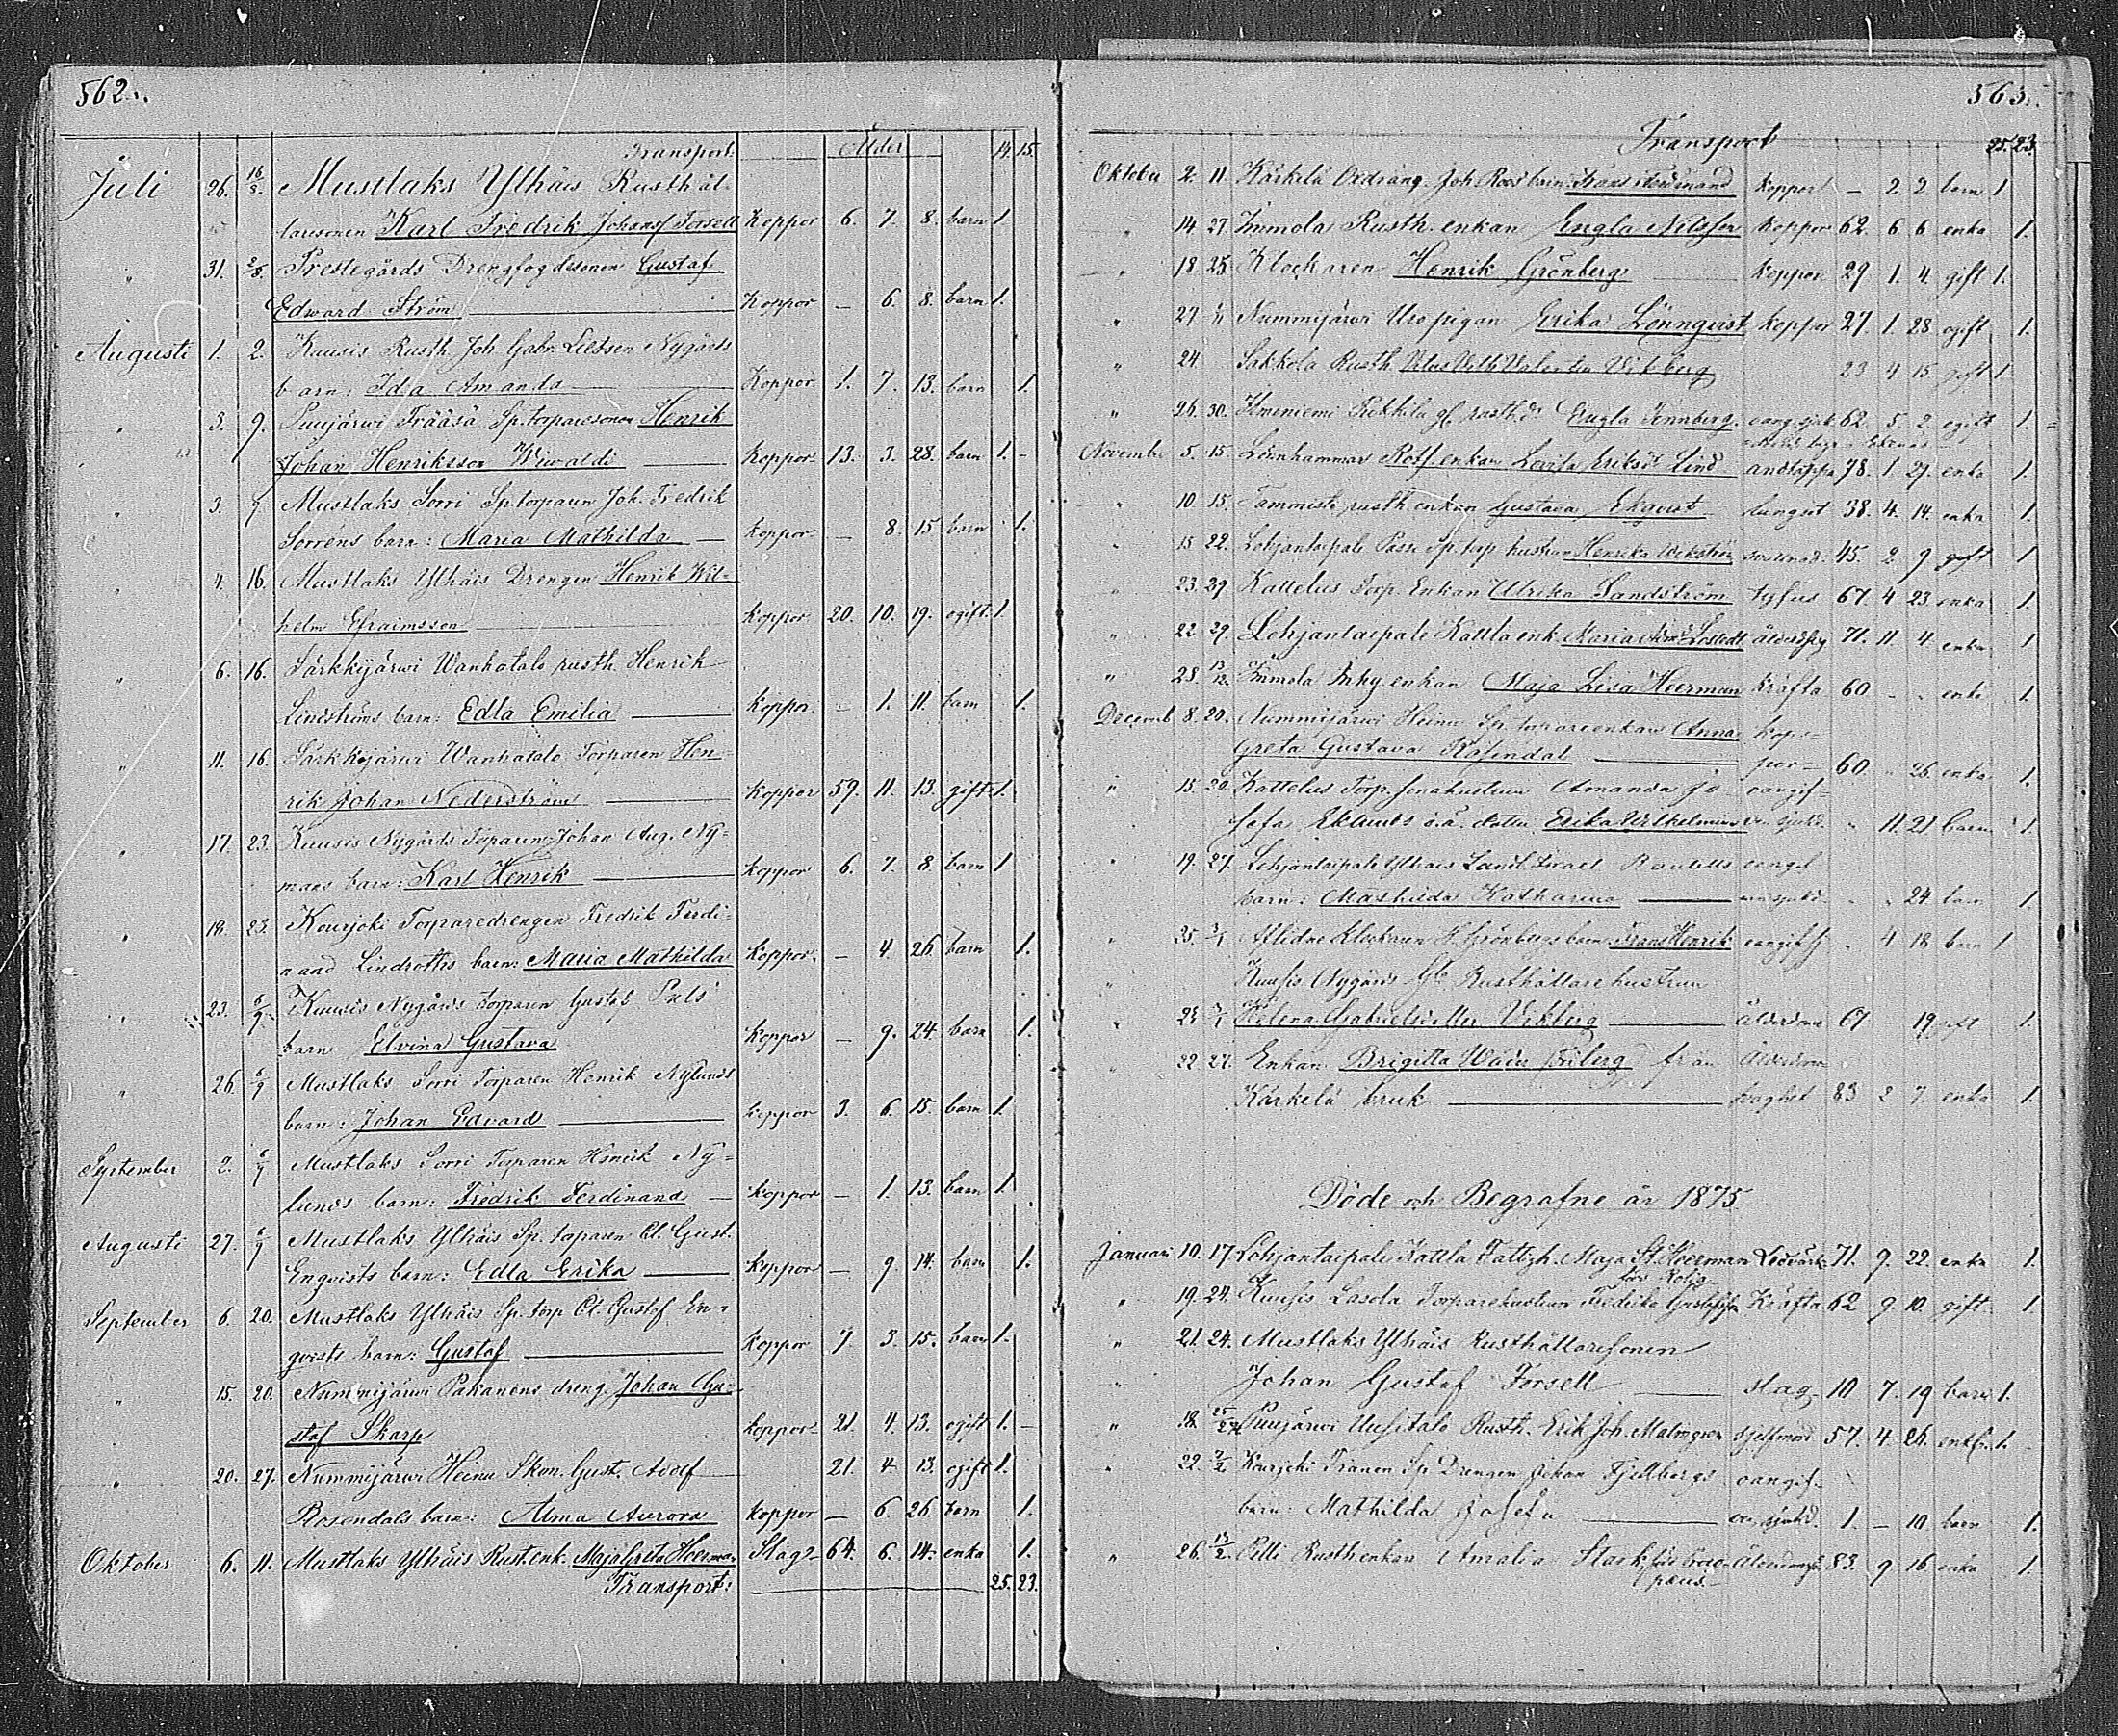 562.
Transport: Ålder 14. 15.
Juli 26. 16/8. Mustlaks Ylhäis Rusthål-
laresonen Karl Fredrik Johansf Forsell Koppor 6. 7. 8. barn 1.
" 31. 2/8. Prestegårds Drengfogdesonen Gustaf
Edward Ström Koppor — 6. 8. barn 1.
Augusti 1. 2. Kuusis Rusth. Joh. Gabr. Nygårds
barn: Ida Amanda Koppor 1. 7. 13. barn 1.
" 3. 9. Puujärwi Frääsä Sp.torparesonen Henrik
Johan Henriksson Wiwaldi Koppor 13. 3. 28. barn 1. -
" 3. 9 Mustlaks Sorri Sp.torparen Joh. Fredrik
Sorréns barn: Maria Mathilda — Koppor — 8. 15 barn 1.
" 4. 16. Mustlaks Ylhäis Drengen Henrik Wil-
helm Efraimsson Koppor 20. 10. 19. ogift 1.
" 6. 16. Särkkijärwi Wanhatalo rusth. Henrik
Lindströms barn: Edla Emilia Koppor. - 1. 11. barn 1.
" 11. 16. Särkkijärwi Wanhatalo Torparen Hen-
rik Johan Nederström Koppor 59. 11. 13. gift 1.
" 17. 23. Kuusis Nygårds Torparen Johan Aug. Ny=
mans barn: Karl Henrik Koppor 6. 7. 8 barn 1
" 18. 23. Kourjoki Torparedrengen Fredrik Ferdi-
nand Lindroths barn: Maria Mathilda Koppor. — 4. 26 barn 1.
" 23. 6/9 Kuusis Nygårds torparen Gustaf
barn Elvina Gustava Koppor — 9. 24. barn 1.
" 26. 6/9 Mustlaks Sorri Torparen Henrik Nylunds
barn: Johan Edvard Koppor 3. 6. 15. barn 1.
September 2. 6/9 Mustlaks Sorri Torparen Henrik Ny=
lunds barn: Fredrik Ferdinand — Koppor — 1. 13. barn 1.
Augusti 27. 6/9 Mustlaks Ylhäis Sp. torparen Gust.
Engvists barn: Edla Erika Koppor — 9. 14. barn 1.
September 6. 20. Mustlaks Ylhäis Sp. torp Gustaf En-
gvists barn: Gustaf Koppor 7 3. 15. barn 1.
" 15. 20. Nummijärwi Pakanens dreng Johan Gu-
staf Skarp Koppor 21. 4. 13. ogift 1. -
" 20. 27. Nummijärwi Heinu Skom. Gust. Adolf 21. 4 13. ogift 1.
Rosendals barn: Alma Aurora Koppor — 6. 26. barn 1.
Oktober 6. 11. Mustlaks Ylhäis Rust.enk. Maja Greta Heerman Slag 64. 6. 14. enka 1.
Transport: 25. 23.
563.
Transport 25. 23.
Oktober 2. 11. Kärkelä Joh Roos barn Frans Ferdinand Koppor — 2. 2. barn 1
" 14 27. Immola Rusth. enkan Engla Nilsson Koppor 62. 6 6 enka 1.
" 18. 25. Klockaren Henrik Grönberg Koppor 29 1. 4. gift 1.
" 27 1/11 Nummijärwi pigan Erika Lönnqvist Koppor 27. 1. 28 ogift 1.
" 24. Sakkola Rusth Wikberg 23 4 15 gift 1
" 26. 30. gl. rusth. Engla Tennberg 62. 5. 2. ogift 1.
November 5. 15. Lönnhammar enkan Lovisa Lind andtäppa 78. 1 21. enka 1.
" 10 15. Tammisto rusth. enkan Gustava Ekqvist lungsot 38. 4. 14. enka 1.
" 15 22. Lohjantaipale Sp.torp. hustrun Henrika 45. 2 9 gift 1
" 23. 29 Kattelus Torp. Enkan Ulrika Sandström tyfus 67. 4 23 enka 1.
" 22 29. Lohjantaipale Kattla enk. Maria 71. 11. 4. enka 1
" 28. 13/12. Immola Inhy. enkan Maja Lisa Heerman Kräfta 60 - - enka 1.
Decemb 8. 20. Nummijärwi Heinu Sp. torpareenkan Anna kop-
Greta Gustava Rosendal por= 60. " 26. enka 1.
" 15. 20. Kattelus Torp. sonahustrun Amanda Jo- oangif=
sefa Eklunds o.ä. dotter Erika Wilhelmina ven sjukd. " 11. 21 barn 1.
" 19. 27. Lohjantaipale Ylhäis oangif
barn: Mathilda Katharina ven sjukd. " " 24. barn 1.
" 25. 3/1 Aflidne Klockaren H. Grönbergs barn Frans Henrik oangifv " 4 18 barn 1
" Kuusis Nygårds Rusthållarehustrun
" 3/1 Helena Gabrielsdotter Wikberg ålderdom 67 — 19 gift 1.
" 22 27. Enkan Brigitta Friberg från Ålderdom
Kärkelä bruk svaghet 83 2 7. enka 1.
Döde och Begrafne år 1875.
Januari 10. 17. Lohjantaipale Kattla Fattigh. Maja St. Heerman 71. 9. 22. enka 1.
" 19. 24. Kuusis Lasola Torparehustrun Fredrika Gustafs Kräfta 62 9. 10. gift 1
" 21. 24. Mustlaks Ylhäis Rusthållaresonen
Johan Gustaf Forsell Slag 10 7. 19 barn 1.
" 18. Puujärwi Uusitalo Rusth. Erik Joh. Malmgren Sjelfmord 57. 4. 26. enkl. 1.
" 22. 7/2 Kourjoki Sp Drengen Johan Fjellbergs oangif-
barn: Mathilda Josefa ven sjukd. 1. — 10 barn 1.
" 26. Rusthenkan Amalia Stark 83. 9 16 enka 1.